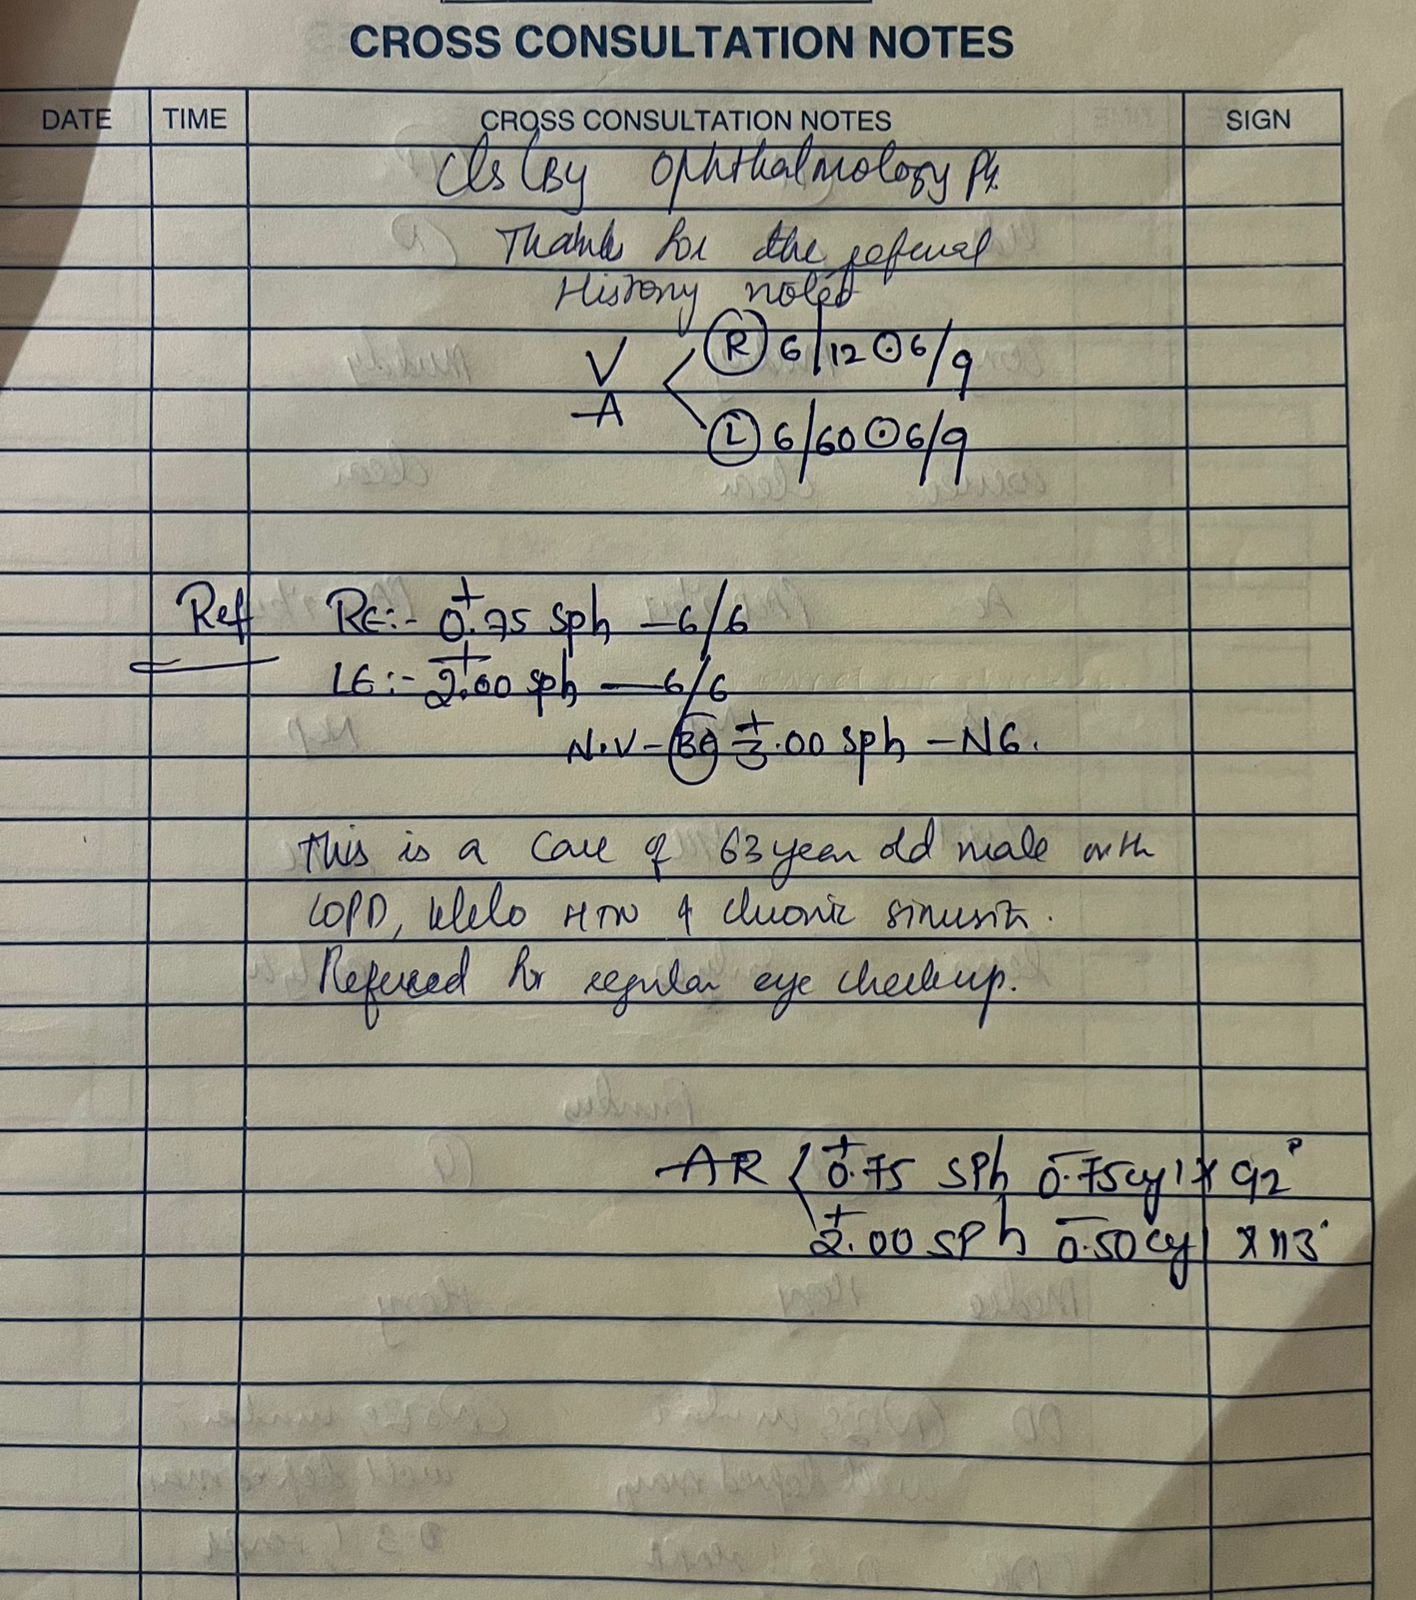 CROSS CONSULTATION NOTES
DATE TIME CROSS CONSULTATION NOTES SIGN
Ophthalmology
Thanks for the referral
History noted
V R 6/12 ⊙ 6/9
A L 6/60 ⊙ 6/9
Ref RE:- +0.75 sph — 6/6
LE:- +2.00 sph — 6/6
N.V - BE +3.00 sph - N6.
This is a case of 63 year old male with
COPD, HTN & chronic sinusitis.
Referred for regular eye checkup.
AR +0.75 SPh -0.75 cyl x 92°
+2.00 SPh -0.50 cyl x 113°